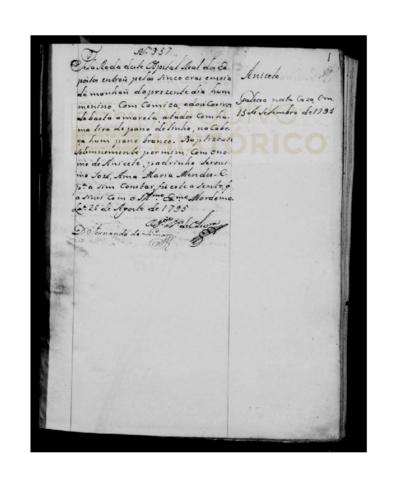 Nº 957
Pela Roda deste Ospital Real da Ex
posta entrou pelas sinco oras e meia
da menhaã do prezente dia hum
menino, Com Camiza, e dois Coeiros
de baeta amarela, atados Com hu
ma tira de pano de linho, na Cabe
ça hum pano branco. Baptizou-se
Solemnemente por mim, Com o no
me de Aniceto, padrinho
Jozé, Ama Maria Mendes. E
pª a sim Constar, fiz este aSento q̃
a sinei Com o Mordomo
26 de Agosto de 1795
Fernando de
Aniceto
Faleceo nesta Caza, em
15 de Setembro de 1795
1
HISTÓRICO